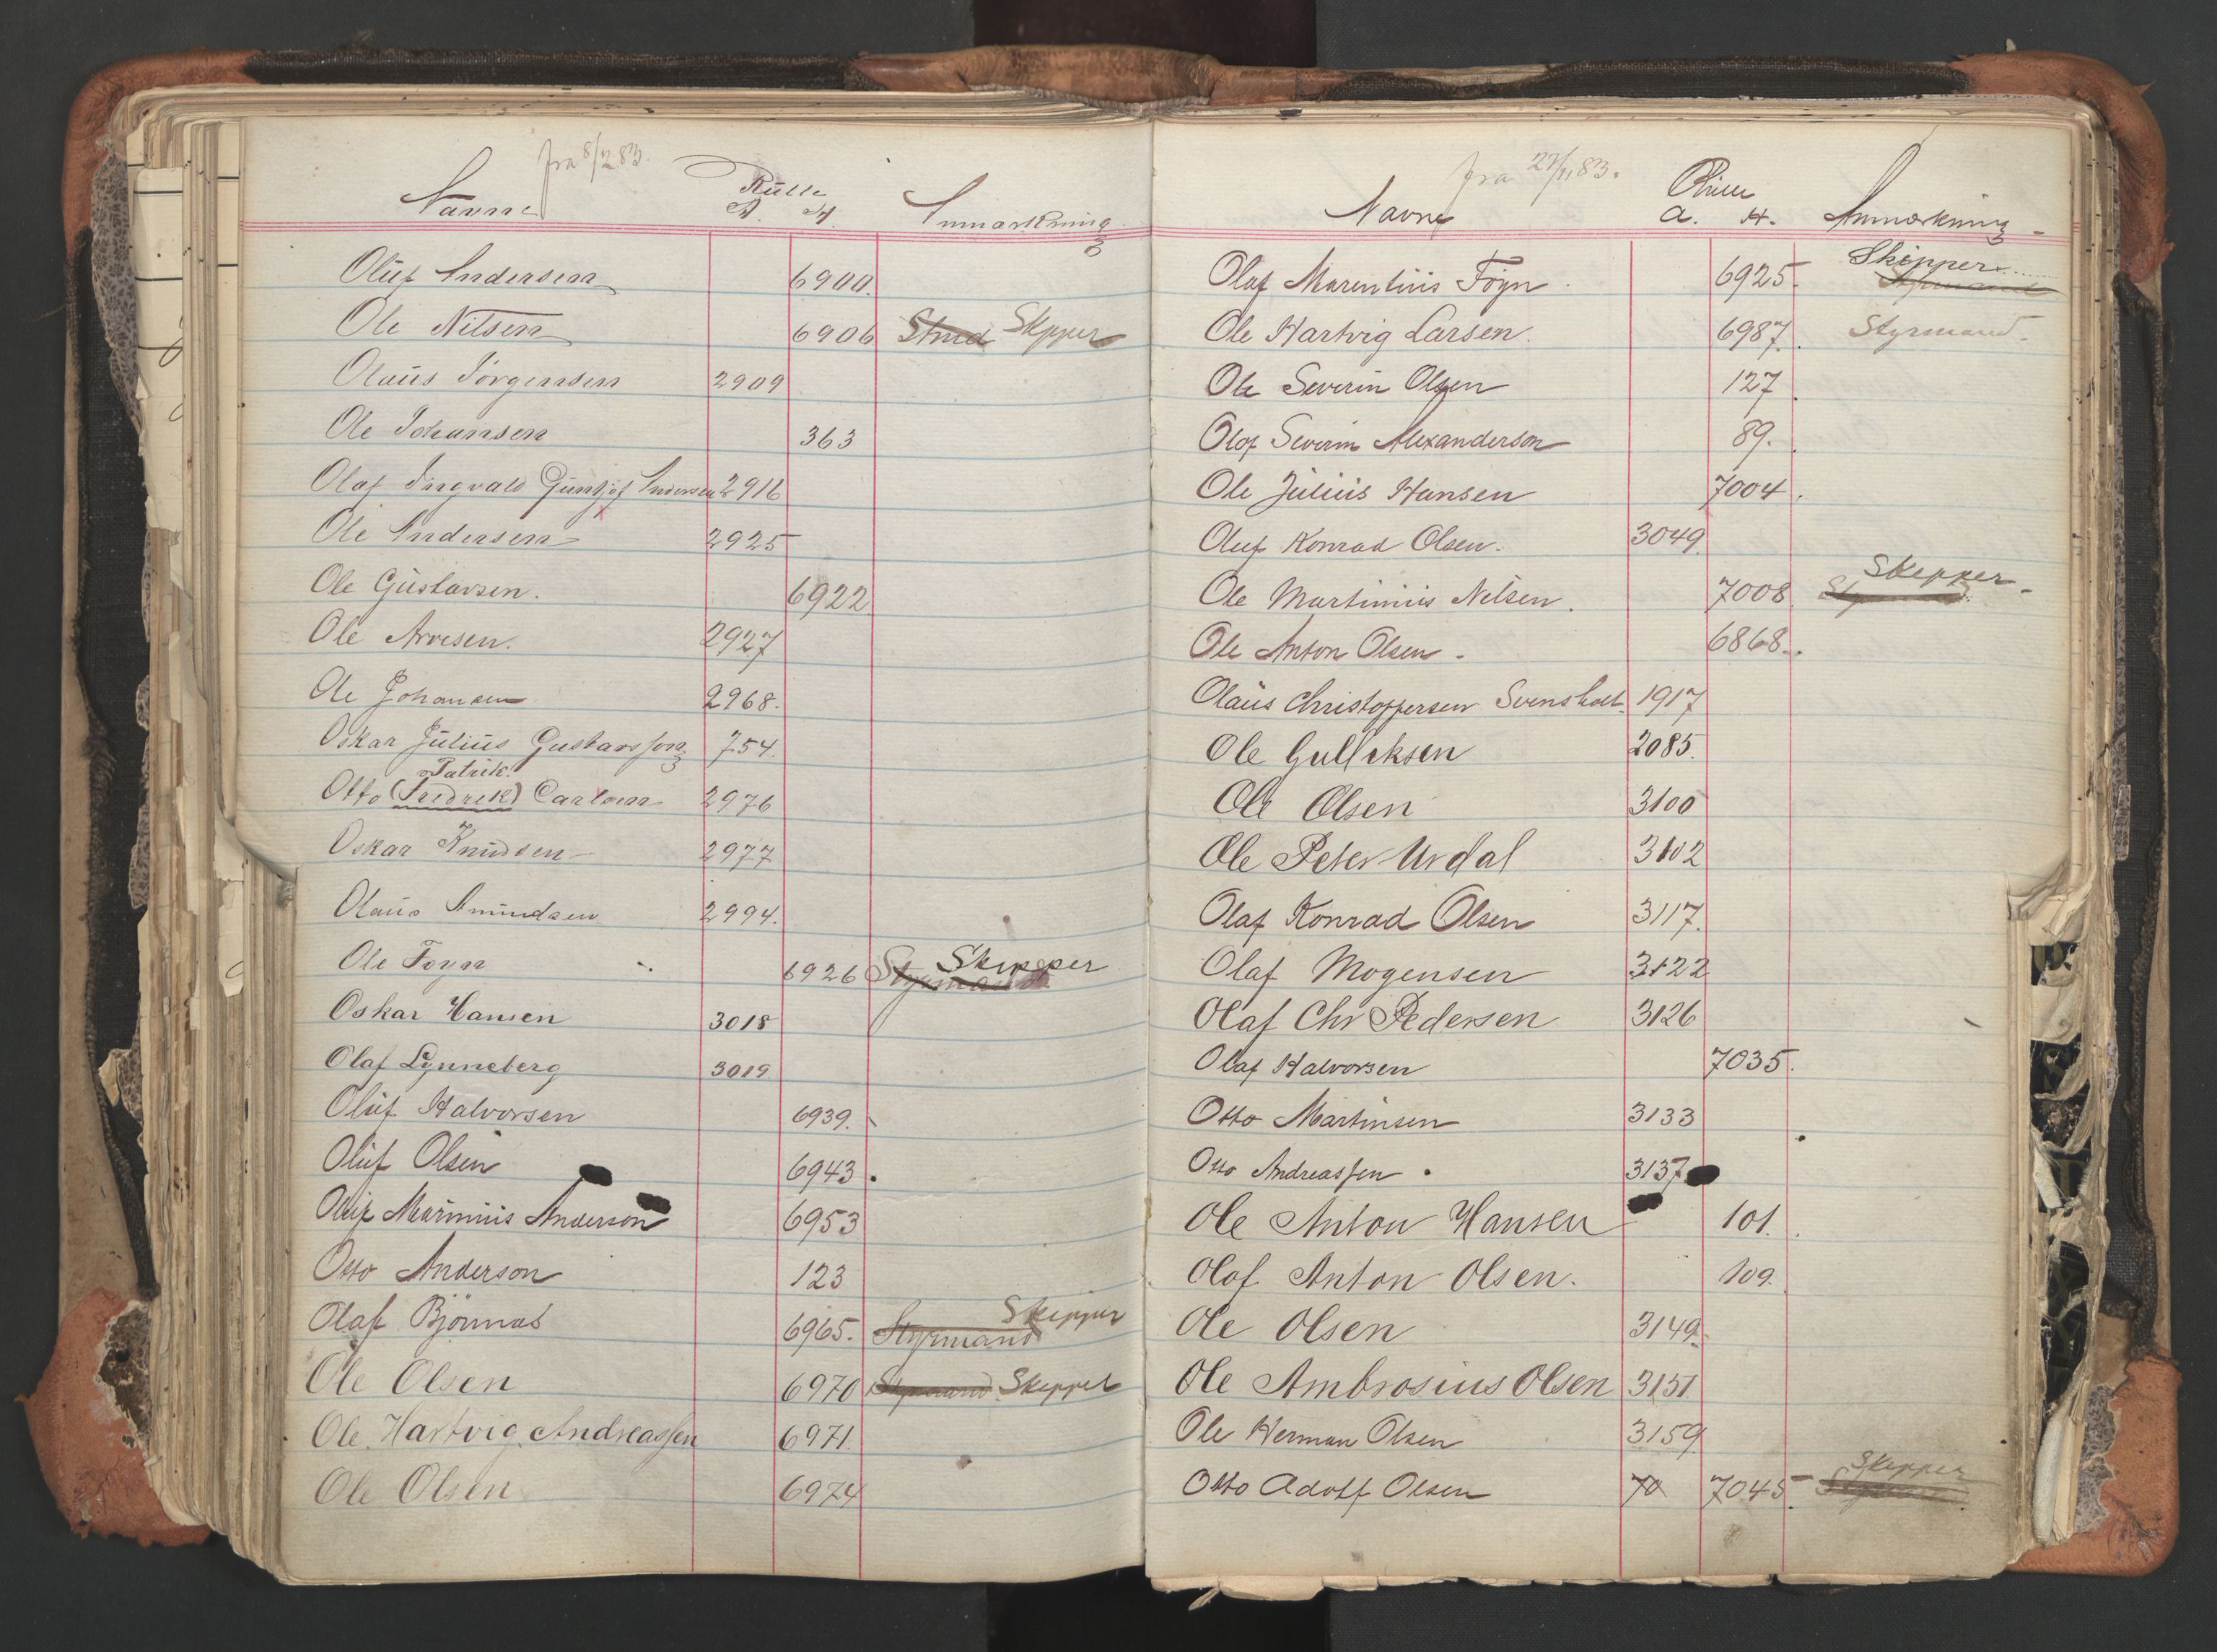 fra 8/2 83.
Navne Rulle Anmærkning
A. H.
Oluf Andersen 6900.
Ole Nilsen 6906 Strmd Skipper
Olaus Jörgensen 2909
Ole Johansen 363
Olaf Ingvald Andersen 2916
Ole Andersen 2925
Ole Gustavsen. 6922
Ole Arvesen. 2927
Ole Johansen 2968.
Oskar Julius Gustavsson 754.
Patrik.
Otto (Fredrik) Carlsen 2976
Oskar Knudsen 2977
Olaus Amundsen 2994.
Ole Foyn 6926 Styrmand Skipper
Oskar Hansen 3018
Olaf Lynneberg 3019
Oluf Halvorsen 6939.
Oluf Olsen 6943.
Oluf Marinius Anderson 6953
Otto Anderson 123
Olaf Björnnes 6965. Styrmand Skipper
Ole Olsen 6970 Styrmand Skipper
Ole Hartvig Andreassen 6971.
Ole Olsen 6974
fra 27/11 83.
Navne Rulle Anmærkning
A. H.
Skipper
Olaf Marentius Föyn 6925. Styrmand
Ole Hartvig Larsen. 6987. Styrmand.
Ole Severin Olsen 127.
Olof Severin Alexanderson 89.
Ole Julius Hansen 7004.
Oluf Konrad Olsen. 3049.
Skipper
Ole Martinius Nilsen. 7008
Ole Anton Olsen 6868.
Olaus Christoffersen Svensholt 1917
Ole Gulleksen 2085.
Ole Olsen 3100
Ole Peter Urdal 3102
Olaf Konrad Olsen 3117.
Olaf Mogensen 3122
Olaf Chr Pedersen 3126
Olaf Halvorsen 7035.
Otto Martinsen 3133
Otto Andreassen 3137
Ole Anton Hansen 101.
Olof Anton Olsen. 109.
Ole Olsen 3149.
Ole Ambrosius Olsen 3151
Ole Herman Olsen 3159
Skipper
Otto Adolf Olsen 70 7045.